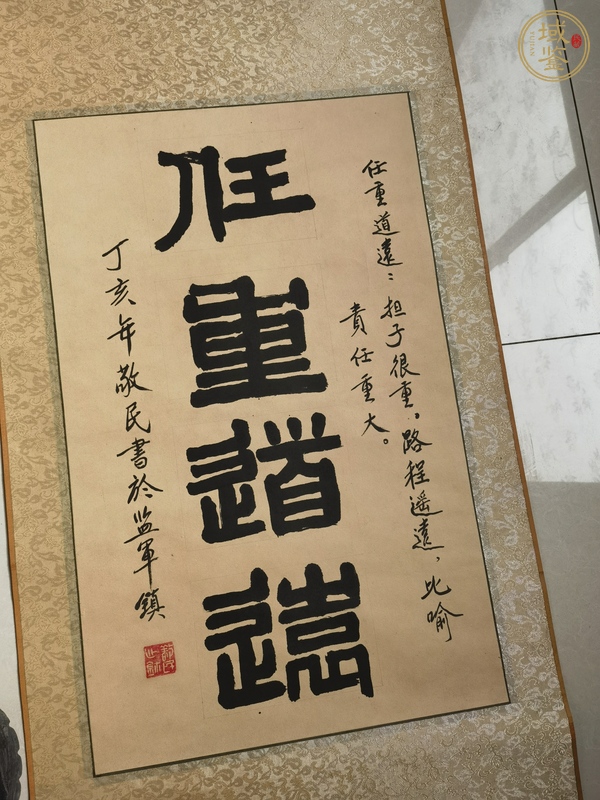 任重道遠：担子很重。路程遥遠，比喻
責任重大。
任重道遠
丁亥年敬民書於监軍鎮
域鉴
YUJIAN